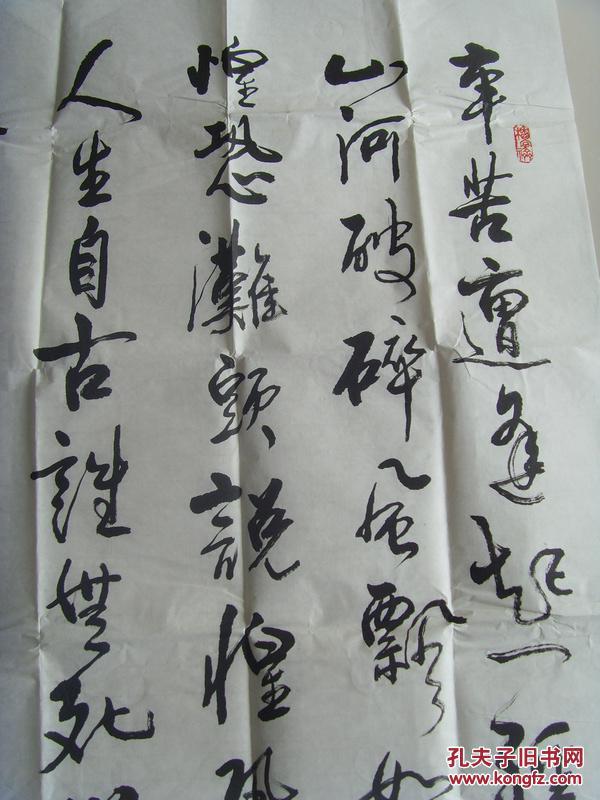 辛苦遭逢起一經
山河破碎風飄
惶恐灘頭說惶恐
人生自古誰無死
孔夫子旧书网
www.kongfz.com